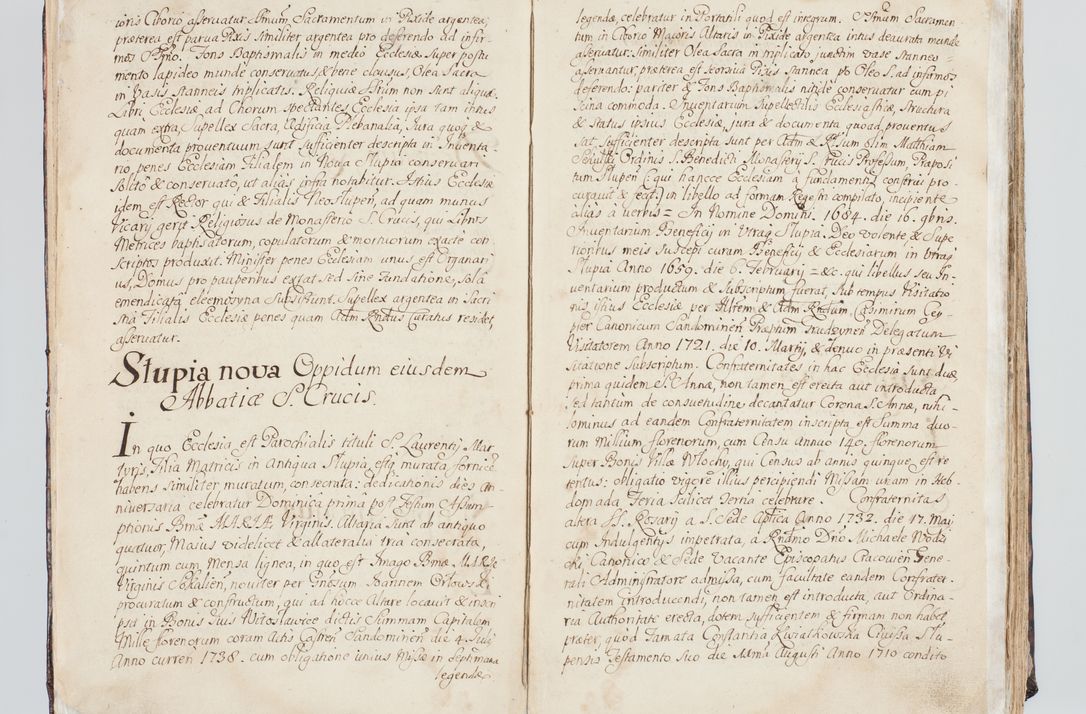 ioris Ciborio asservatur Ssmum Sacramentum in Pixide argentea,
præterea est parva Pixis similiter argentea pro deferendo ad infir-
mos Fons Baptismalis in medio Ecclesiæ super postu
mento lapideo munde conservatus, & bene clausus, Olea Sacra
in Vasis stanneis triplicatis. Reliquiæ non sunt aliquæ.
Libri Ecclesiæ ad Chorum spectantes Ecclesia ipsa tam intus
quam extra, Supellex Sacra, Ædificia Plebanalia, Iura quoq &
documenta proventuum sunt sufficienter descripta in Inventa
rio penes Ecclesiam Filialem in Nova Slupia conservari
solito & conservato, ut alias infra notabitur. Istius Ecclesiæ
idem est Rector qui & Filialis Neo-Slupen, ad quam munus
Vicarij gerit Religiosus de Monasterio S. Crucis, qui Libros
Metrices baptisatorum, copulatorum & mortuorum exacte con
scriptos produxit. Minister penes Ecclesiam unus est Organari
us, Domus pro pauperibus extat sed sine Fundatione, sola
emendicata eleemosyna subsistunt. Supellex argentea in Sacri
stia Filialis Ecclesiæ penes quam Adm Rndus Curatus residet,
asservatur.
Slupia nova Oppidum eiusdem
Abbatiæ S. Crucis.
In quo Ecclesia est Parochialis tituli S. Laurentij Mar
tyris, Filia Matricis in Antiqua Slupia, estq murata, fornice
habens similiter muratum, consecrata: dedicationis dies an
niversaria celebratur Dominica prima post Festum Assum
ptionis Bmæ MARIÆ Virginis. Altaria sunt ab antiquo
quatuor, Maius videlicet & allateralia tria consecrata,
quintum cum Mensa lignea, in quo est Imago Bmæ MARIÆ
Virginis noviter per Gnosum Ioannem
procuratum & constructum, qui ad hocce Altare locavit & inscri
psit in Bonis suis Witoslawice dictis Summam Capitalem
Mille florenorum coram Actis Castren Sandominen die 4. Iulij
Anno curren 1738. cum obligatione unius Missæ in Septimana
legendæ
legendæ, celebratur in Portatili quod est integrum. Ssmum Sacramen
tum in Ciborio Majoris Altaris in Pixide argentea intus deaurata munde
asservatur: similiter Olea Sacra in triplicato junctim vase stanneo
asservantur, præterea est seorsiva Pixis stannea po Oleo S. ad infirmos
deferendo: pariter & Fons Baptismalis nitide conservatur cum pi
scina commoda. Inventarium Supellectilis Ecclesiasticæ, structura
& status ipsius Ecclesiæ, jura & documenta quoad proventus
sat sufficienter descripta sunt per Adm R. sum olim Matthiam
Ordinis S. Benedicti Monasterij S. Crucis Professum, Præposi
tum Slupen (: qui hancce Ecclesiam a fundamentis construi pro
curavit & fecit :) in libello ad formam Regestri compilato, incipiente
alias a verbis = In Nomine Domini. 1684. die 16. 9bris.
Inventarium Beneficij in Utraq Slupia. Deo volente & Supe
rioribus meis suscepi curam Beneficij & Ecclesiarum in utraq
Slupia Anno 1659. die 6. Februarij = &c. qui libellus seu In-
ventarium productum & subscriptum fuerat, sub tempus Visitatio
nis istius Ecclesiæ per Illrem & Adm Rndum, Casimirum
Canonicum Sandominen
Visitatorem Anno 1721. die 10. Martij, & denuo in præsenti Vi
sitatione subscriptum. Confraternitates in hac Ecclesia sunt duæ,
prima quidem S. Annæ, non tamen est erecta aut introducta
sed tantum de consuetudine decantatur Corona S. Annæ, nihi-
lominus ad eandem Confraternitatem inscripta est Summa duo-
rum Millium florenorum, cum Censu annuo 140. florenorum
super Bonis Villæ Wlochy, qui Census ab annis quinque est re
tentus: obligatio vigore illius percipiendi Missam unam in Heb-
domada Feria scilicet Tertia celebrare. Confraternitas
altera SS. Rosarij a S. Sede Aplica Anno 1732. die 17. Maij
cum Indulgentijs impetrata, a Rndmo Dno Michaele Wodzi
cki, Canonico & Sede Vacante Episcopatus Cracovien Gene-
rali Administratore admissa, cum facultate eandem Confrater-
nitatem introducendi, non tamen est introducta, aut Ordina-
ria Authoritate erecta, dotem sufficientem & firmam non habet,
præter, quod Famata Constantia Kwiatkowska Civissa Slu-
pensis Testamento suo die Augusti Anno 1710 condito